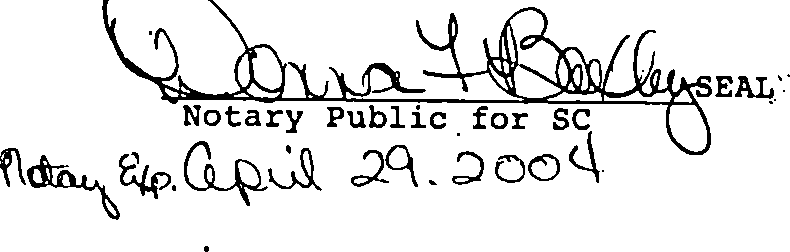 Donna F. SEAL
Notary Public for SC
Notary Exp. April 29. 2004